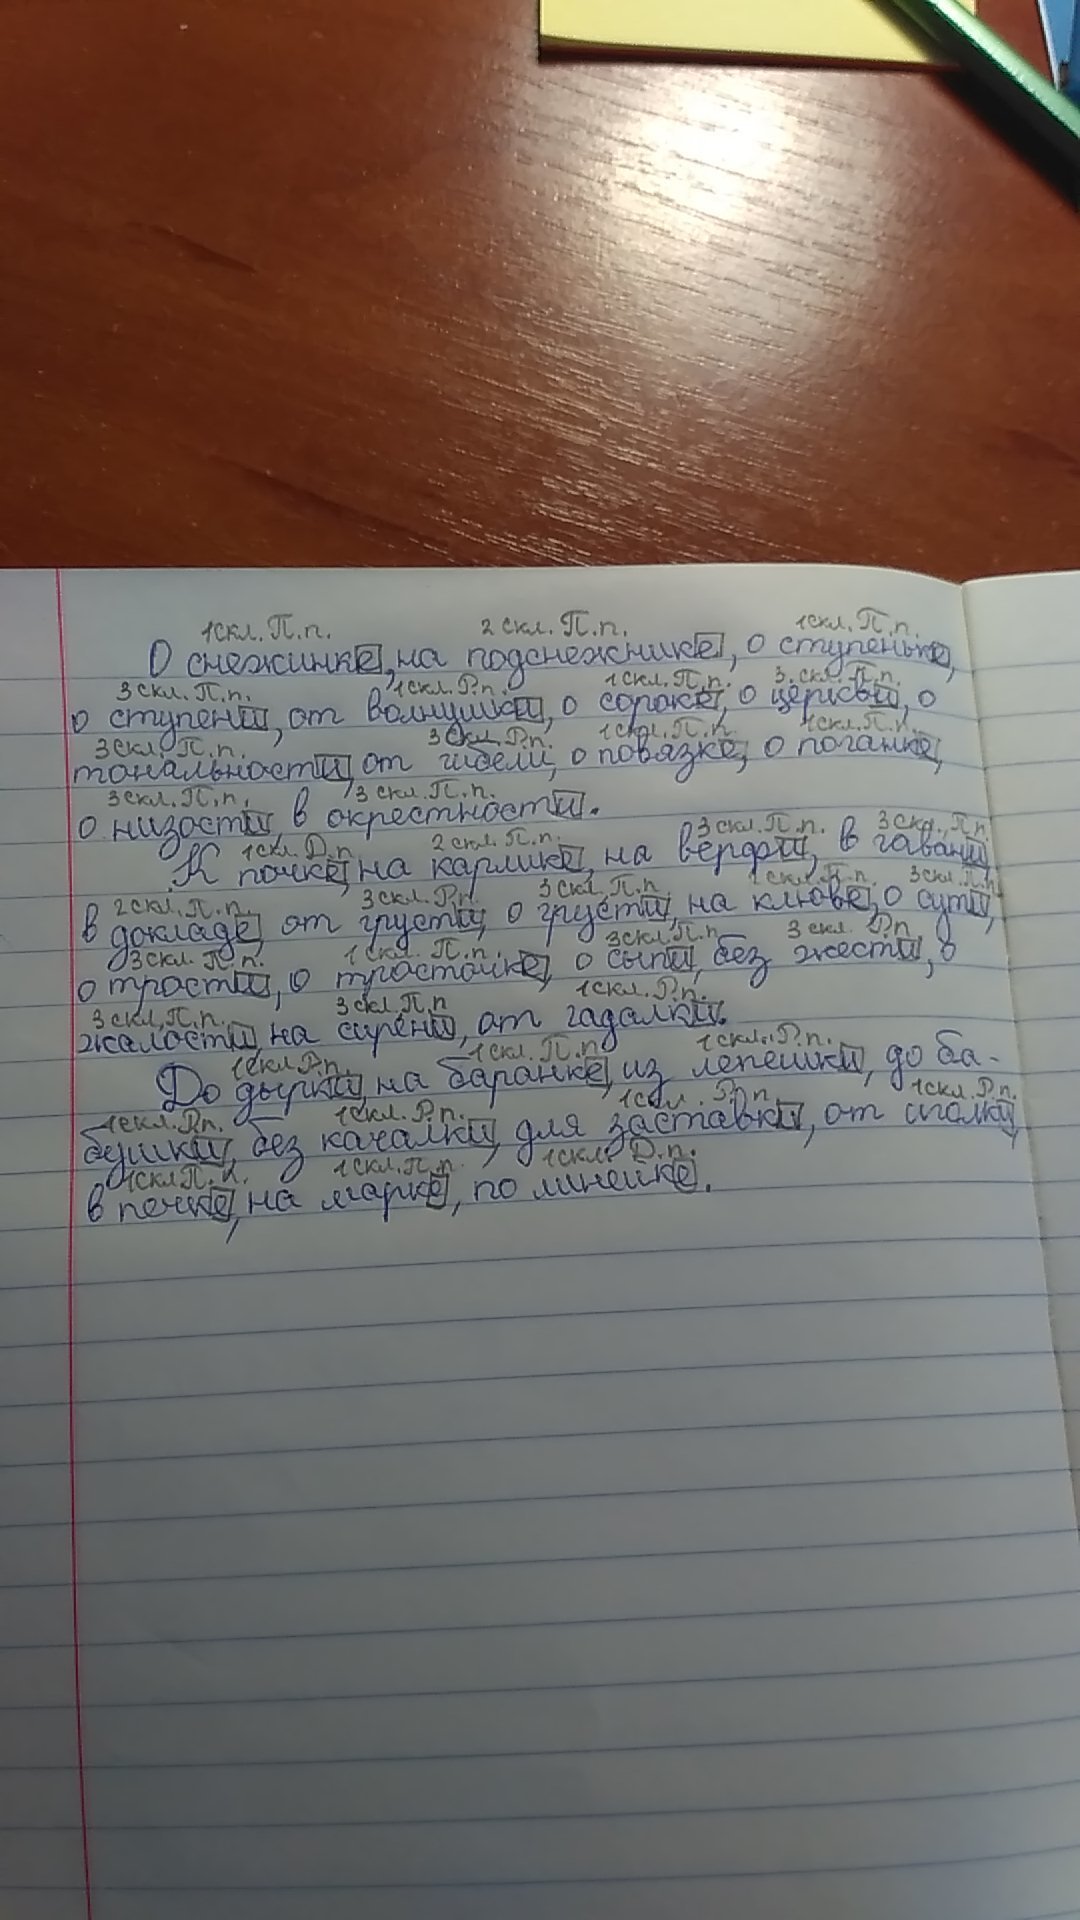 1скл. П.п. 2 скл. П.п. 1скл. П.п.
О снежинке, на подснежнике, о ступеньке,
3 скл. П.п. 1скл. Р.п. 1скл. П.п. 3. скл. П.п.
о ступени, от волнушки, о сороке, о церкви, о
3скл. П.п. 3скл. Р.п. 1скл. П.п. 1скл. П.п.
тональности, от гибели, о повязке, о поганке,
3скл. П.п. 3 скл. П.п.
о низости, в окрестности.
1скл. Д.п. 2 скл. П.п. 3 скл. П.п. 3 скл. П.п.
К почке, на карлике, на верфи, в гавани,
2 скл. П.п. 3скл. Р.п. 3 скл. П.п. скл. П.п. 3скл. П.п.
в докладе, от грусти, о грусти, на клюве, о сути,
3скл. П.п. 1скл. П.п. 3скл. П.п. 3 скл. Р.п.
о трости, о тросточке, о сыпи, без жести, о
3 скл. П.п. 3 скл. П.п 1скл. Р.п.
жалости, на сирени, от гадалки.
1скл Р.п. 1скл. П.п 1скл. Р.п.
До дырки, на баранке, из лепешки, до ба-
1скл. Р.п. 1скл. Р.п. 1скл. Р.п. 1скл. Р.п.
бушки, без качалки, для заставки, от иголки,
1скл П.п. 1скл. П.п. 1скл. Д.п.
в печке, на марке, по линейке.